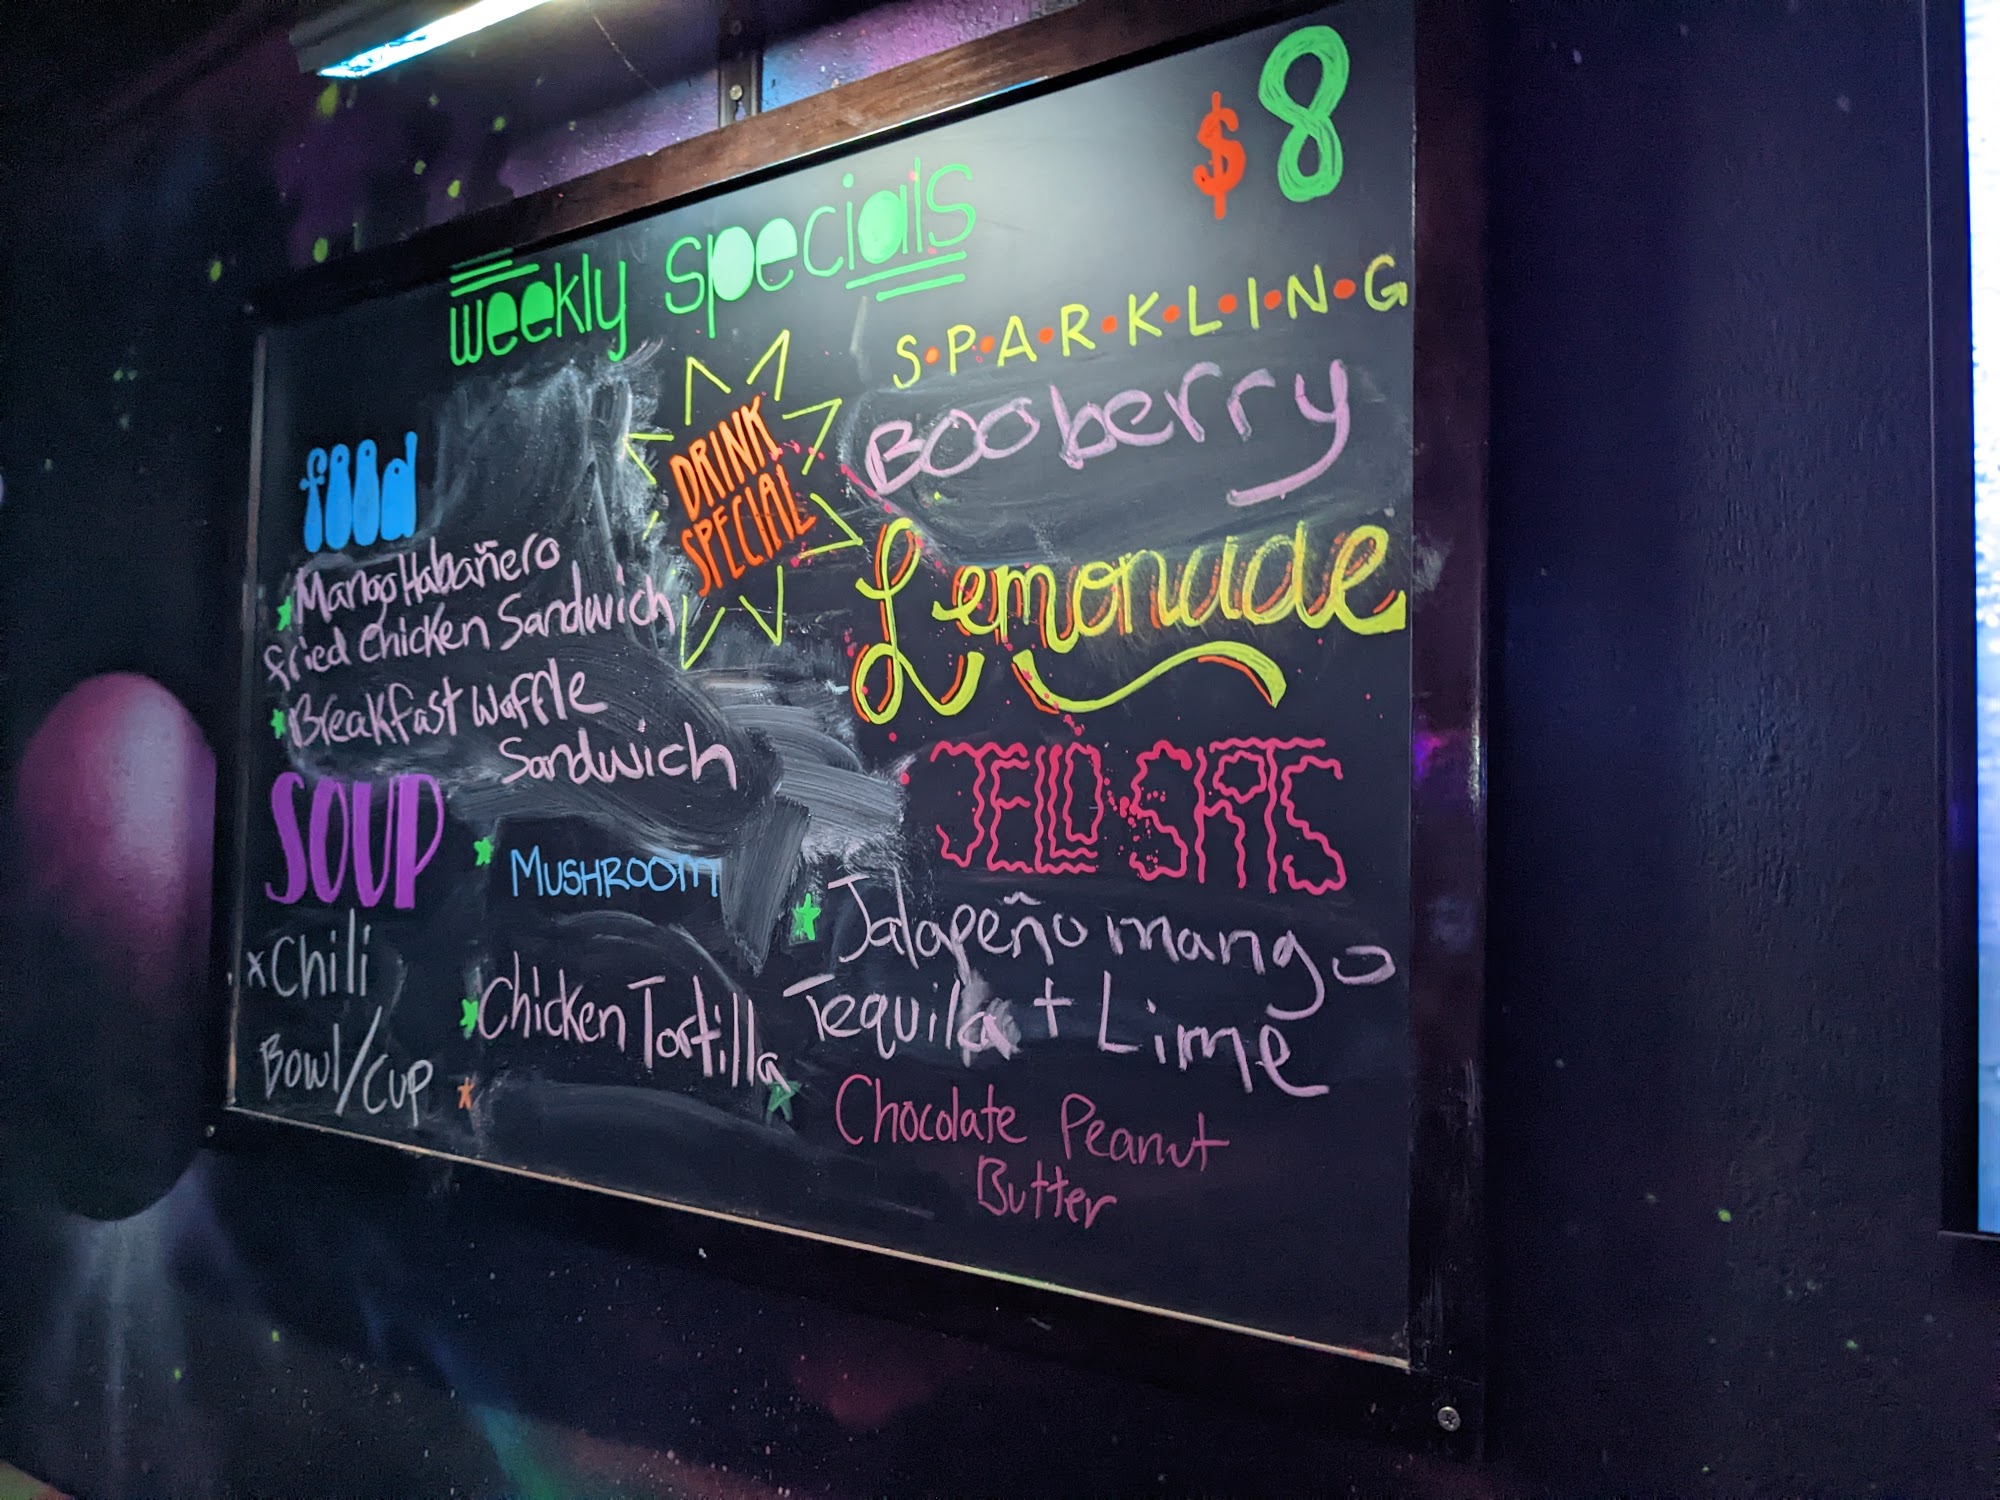 weekly specials
$8
food
Mango Habañero
fried Chicken Sandwich
Breakfast Waffle
Sandwich
SOUP
Chili
Bowl/Cup
MUSHROOM
Chicken Tortilla
DRINK
SPECIAL
S•P•A•R•K•L•I•N•G
Booberry
Lemonade
JELLO•SHOTS
Jalapeño mango
Tequila + Lime
Chocolate Peanut
Butter